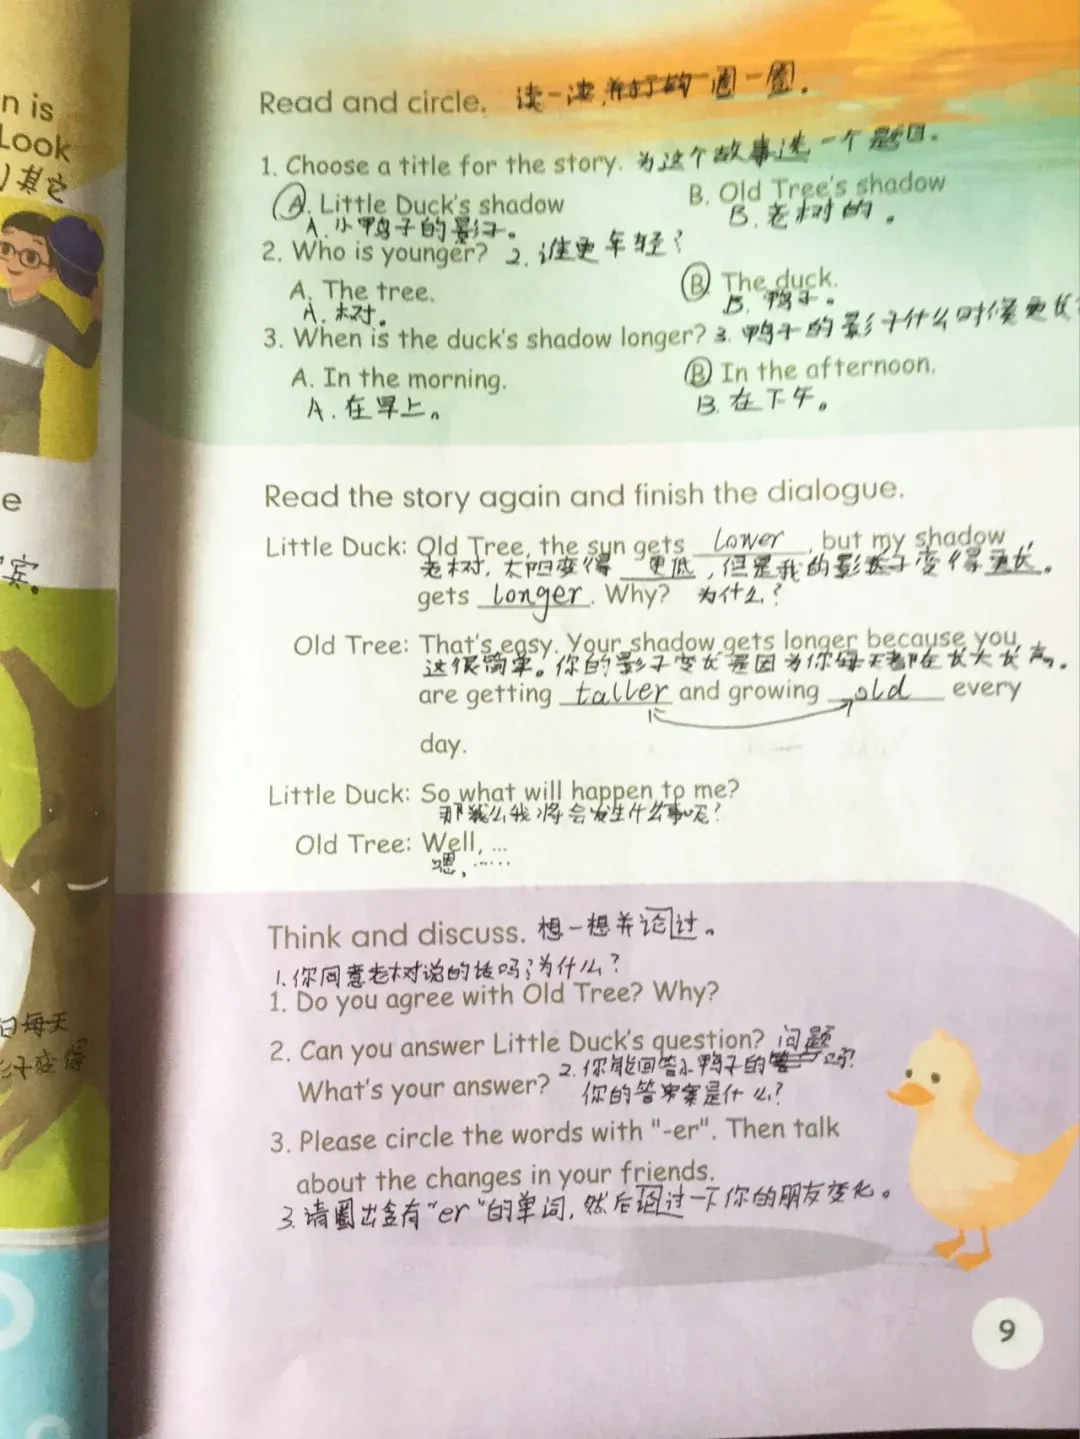 n is
Look
其它
e
宾。
日每天
影子变得
Read and circle. 读一读,并打的圈一圈。
1. Choose a title for the story. 为这个故事选一个题目。
A. Little Duck's shadow B. Old Tree's shadow
A. 小鸭子的影子。 B. 老树的。
2. Who is younger? 2. 谁更年轻?
A. The tree. B. The duck.
A. 树。 B. 鸭子。
3. When is the duck's shadow longer? 3. 鸭子的影子什么时候更长?
A. In the morning. B. In the afternoon.
A. 在早上。 B. 在下午。
Read the story again and finish the dialogue.
Little Duck: Old Tree, the sun gets lower, but my shadow
老树,太阳变得 更低,但是我的影子变得更长。
gets longer. Why? 为什么?
Old Tree: That's easy. Your shadow gets longer because you
这很简单。你的影子变长是因为你每天都在长大长高。
are getting taller and growing old every
day.
Little Duck: So what will happen to me?
那么我将会发生什么事呢?
Old Tree: Well, ...
嗯,……
Think and discuss. 想一想并论过。
1.你同意老树说的话吗?为什么?
1. Do you agree with Old Tree? Why?
2. Can you answer Little Duck's question? 问题
2. 你能回答小鸭子的 吗?
What's your answer? 你的答案是什么?
3. Please circle the words with "-er". Then talk
about the changes in your friends.
3. 请圈出含有"er"的单词,然后 过一下你的朋友变化。
9